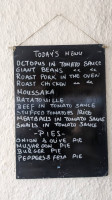 TODAY'S MENU
OCTOPUS IN TOMATO SAUCE
GIANT BEANS
ROAST PORK IN THE OVEN
ROAST CHICKEN
MOUSSAKA
RATATOUILLE
BEEF IN TOMATO SAUCE
STUFFED TOMATOES RICE
MEATBALLS IN TOMATO SAUCE
SNAILS IN TOMATO SAUCE
-PIES-
ONION & OLIVE PIE
MUSHROOM PIE
BURGER PIE
PEPPERS & FETA PIE